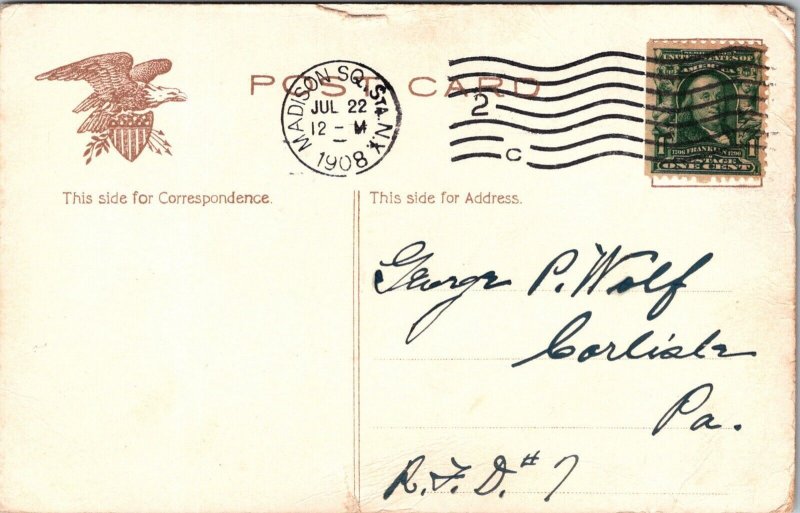 POST CARD
MADISON SQ. STA. N.Y.
JUL 22
12 - M
1908
2
C
UNITED STATES OF
AMERICA
FRANKLIN
POSTAGE
ONE CENT
This side for Correspondence.
This side for Address.
George P. Wolf
Carlisle
Pa.
R.F.D. # 7